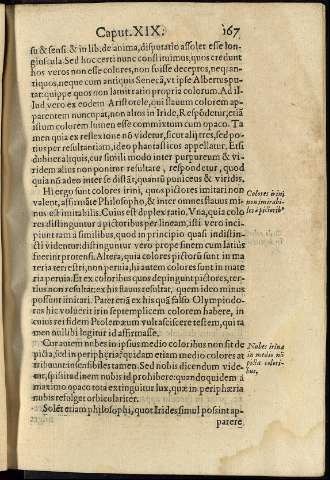 Caput. XIX. 167
su & sensi. & in lib. de anima, disputatio assolet esse lon-
giuscula. Sed hoc certi nunc constituimus, quos credunt
hos veros non esse colores, non fuisse deceptos, neq; an-
tiquos, neque cum antiquis Senecã, vt ipse Albertus pu-
tat: quippe quos non latuit ratio propria colorum. Ad il-
lud vero ex eodem Aristotele, qui flauum colorem ap-
parentem nuncupat, non alios in Iride, Respõdetur, etiã
istum colorem lumen esse commixtum cum opaco. Ta
men quia ex reflexione nõ videtur, sicut alij tres, sed po-
tius per resultantiam, ideo phantasticos appellatur. Et si
dubitet aliquis, cur simili modo inter purpureum & vi-
ridem alius non ponitur resultare, respondetur, quod
quia nõ adeo inter se distãt, quantũ puniceus & viridis.
Hi ergo sunt colores irini, quos pictores imitari non
valent, affirmãte Philosopho, & inter omnes flauus mi-
nus est imitabilis. Cuius est duplex ratio. Vna, quia colo
res distinguuntur à pictoribus per lineam, isti vero inci-
piunt tam à simili, quod in principio quasi indistin-
cti videntur: distinguntur vero prope finem cum latius
fuerint protensi. Altera, quia colores pictorũ sunt in ma
teria terrestri, non pernia, hi autem colores sunt in mate
ria pernia. Et ex coloribus quos depingunt pictores, ter-
tius non resultat: ex his flauus resultat, quem ideo minus
possunt imitari. Patet etiã ex his quã falso Olympiodo-
rus hic voluerit irin septemplicem colorem habere, in
cuius rei fidem Ptolemæum vult asciscere testem, qui ta
men nullibi legitur id affirmasse.
Cur autem nubes in ipsius medio coloribus non sit de
picta, sed in peripheria? quidam etiam medio colores at
tribuunt insensibiles tamen. Sed nobis dicendum vide-
tur, spissitudinem nubis id prohibere: quandoquidem à
maximo opaco tota extinguitur lux, quæ in periphæria
nubis refulget orbiculariter.
Solẽt etiam philosophi, quot Irides, simul possint ap-
parere
Colores irini
non imitabi-
les a pictorib'
Nubes irina
in medio nõ
picta colori-
bus.